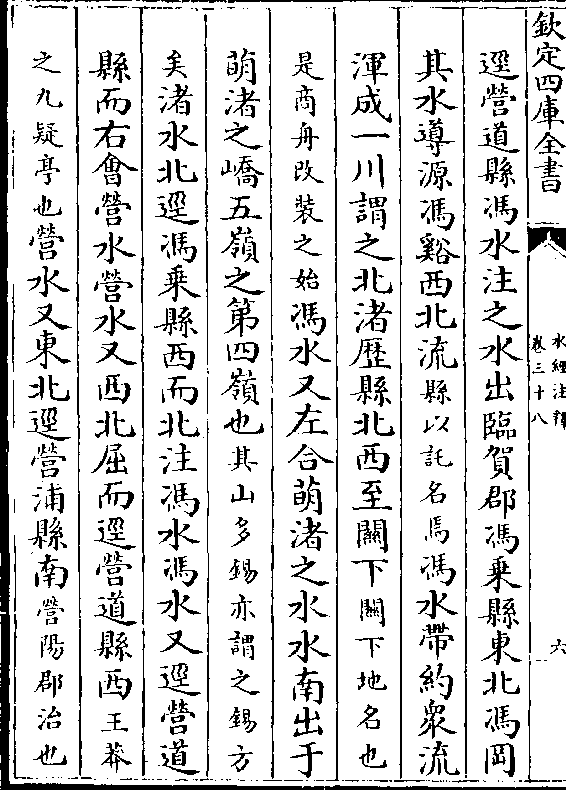 欽定四庫全書
水經注釋
卷三十八
六
逕營道縣馮水注之水出臨賀郡馮乗縣東北馮岡
其水導源馮谿西北流縣以託名焉馮水帶約衆流
渾成一川謂之北渚歴縣北西至關下關下地名也
是商舟改装之始馮水又左合萌渚之水水南出于
萌渚之嶠五嶺之第四嶺也其山多錫亦謂之錫方
矣渚水北逕馮乗縣西而北注馮水馮水又逕營道
縣而右會營水營水又西北屈而逕營道縣西王莽
之九疑亭也營水又東北逕營浦縣南營陽郡治也